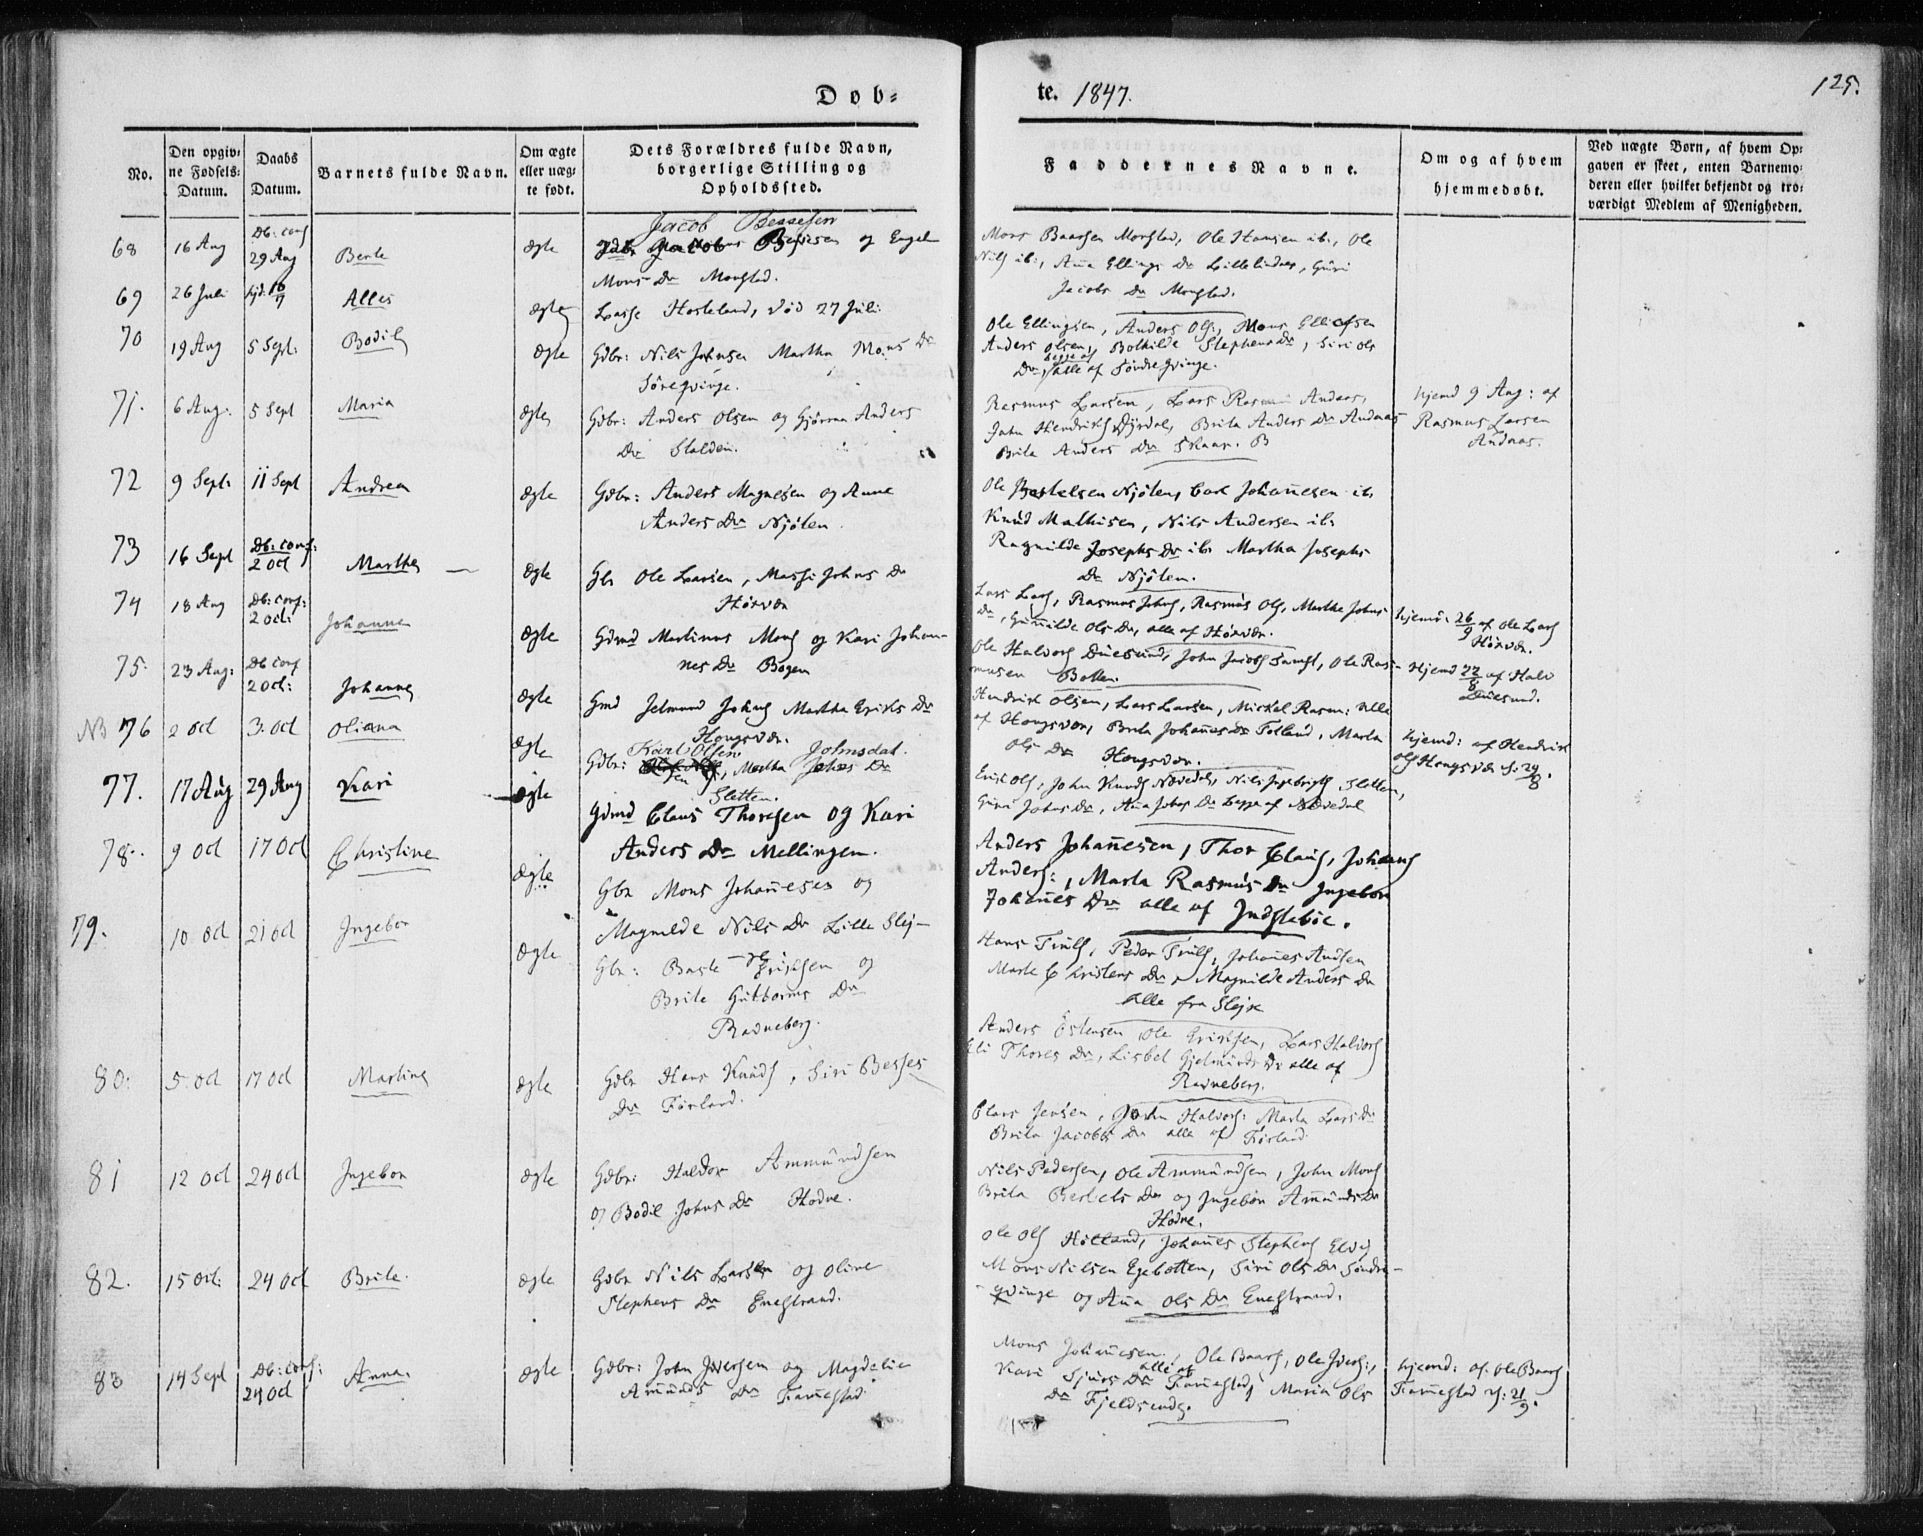 Døb-
te. 1847.
125.
No.
Den opgiv-
ne Fødsels-
Datum.
Daabs
Datum.
Barnets fulde Navn.
Om ægte
eller uæg-
te født.
Dets Forældres fulde Navn,
borgerlige Stilling og
Opholdssted.
Faddernes Navne.
Om og af hvem
hjemmedøbt.
Ved uægte Børn, af hvem Op-
gaven er skeet, enten Barnemo-
deren eller hvilket bekjendt og tro-
værdigt Medlem af Menigheden.
68 16 Aug Db: conf 29 Aug Berte ægte
Jacob Bessesen
og Engel
Mons Dr Monstad.
Mons Baarsen Monstad, Ole Hansen ib:, Ole
Nils ib:, Anna Ellings Dr Lillelindaas, Guri
Jacobs Dr Monstad.
69 26 Juli hjd. 16/9 Alles ægte
Lasse Hosteland, død 27 Juli
70 19 Aug 5 Sept: Bodil ægte
Gdbr: Nils Johnsen Martha Mons Dr
Søreqvinge.
Ole Ellingsen, Anders Ols:, Mons Ellefsen
Anders Olsen, Bothilde Stephens Dr, Siri Ols
Dr, begge af alle af Søndre Qvinge.
71. 6 Aug: 5 Sept Maria ægte
Gdbr: Anders Olsen og Gjørren Anders
Dr Stalden.
Rasmus Larsen, Lars Rasm: Andaas,
John Hendrichs Dyrdal, Brita Anders Dr Andaas
Brita Anders Dr Skaar. B
hjemd 9 Aug: af
Rasmus Larsen
Andaas.
72 9 Sept: 11 Sept Andrea ægte
Gdbr: Anders Magnesen og Anne
Anders Dr Njøten.
Ole Bertelsen Njøten, Carl Johannesen ib:
Knud Mathisen, Nils Andersen ib:
Ragnilde Josephs Dr ib: Martha Josephs
Dr Njøten.
73 16 Sept Db: conf: 2 Oct Marthe ægte
Gbr Ole Larsen, Massi Johns Dr
Høxvær
Lars Lars, Rasmus Johns, Rasmus Ols, Martha Johns
Dr, Gunnilde Ols Dr, alle af Høxvær.
hjemd: 26/9 af Ole Lars
Høxvær.
74 18 Aug Db: conf: 2 Oct: Johanne ægte
Gdmd Martinus Mons og Kari Johan-
nes Dr Bogen
Ole Halvors Duesund, John Jacobs sammest, Ole Ras-
musen Botten.
Hjemd 22/8 af Halv
Duesund.
75. 23 Aug: Db conf 2 Oct: Johanne ægte
Gmd Jelmund Johns Martha Eriks Dr
Hougsvær.
Hendrik Olsen, Lars Larsen, Mickel Rasm: alle
af Hougsvær, Brita Johannes Dr Tolland, Marta
Ols Dr Hougsvær.
hjemd: af Hendrik
Ols Hougsvær d: 29/8.
NB 76 2 Oct 3. Oct Oliana ægte
Karl Olsen Johnsdal.
Gdbr: Martha Johns Dr
Sletten.
Erik Ols, John Knuds Nævedal, Nils Ingebrigts Sletten,
Guri Johns Dr, Anna Johns Dr begge af Nævedal
77. 17 Aug 29 Aug Kari ægte
Gdmd Claus Thorsen og Kari
Anders Dr Mellingen.
Anders Johannesen, Thor Claus, Johans
Anders:, Marta Rasmus Dr Ingebor
Johannes Dr alle af Indstebøe.
78. 9 Oct 17 Oct Christine ægte
Gbr Mons Johannesen og
Magnilde Nils Dr Lille Slej-
re
Hans Truls, Peder Truls, Johannes Andsen
Marte Christens Dr, Magnilde Anders Dr
alle fra Slejre
79. 10 Oct 21 Oct Ingebor ægte
Gbr: Baste Erichsen og
Brite Guttorms Dr
Ravneberg.
Anders Østensen Ole Erichsen, Lars Halvors
Eli Thores Dr, Lisbet Gjelmunds Dr alle af
Ravneberg.
80: 5. Oct 17 Oct Martine ægte
Gdbr Hans Knuds, Siri Besses
Dr Førland.
Claus Jensen, John Halvors: Marta Lars Dr
Brita Jacobs Dr alle af Førland
81 12 Oct 24 Oct Ingebor ægte
Gdbr: Haldor Ammundsen
og Bodil Johns Dr Hodne.
Nils Pedersen, Ole Ammundsen, John Mons
Brita Bertels Dr og Ingebor Amunds Dr
Hodne.
82. 15 Oct: 24 Oct Brite. ægte
Gdbr Nils Larsen og Oline
Stephens Dr Enestrand.
Ole Ols Holland, Johannes Stephens Elvig
Mons Nilsen Egebotten, Siri Ols Dr Søndre-
qvinge og Anna Ols Dr Enestrand.
83 14 Sept Db: conf: 24 Oct Anna. ægte
Gdbr: John Iversen og Magdelie
Amunds Dr Fannestad
Mons Johannesen, Ole Baars, Ole Ivers:,
Kari Sjurs Dr alle af Fannestad, Maria Ols
Dr Fjeldsende.
hjemd: af Ole Baars
Fannestad d: 21/9.